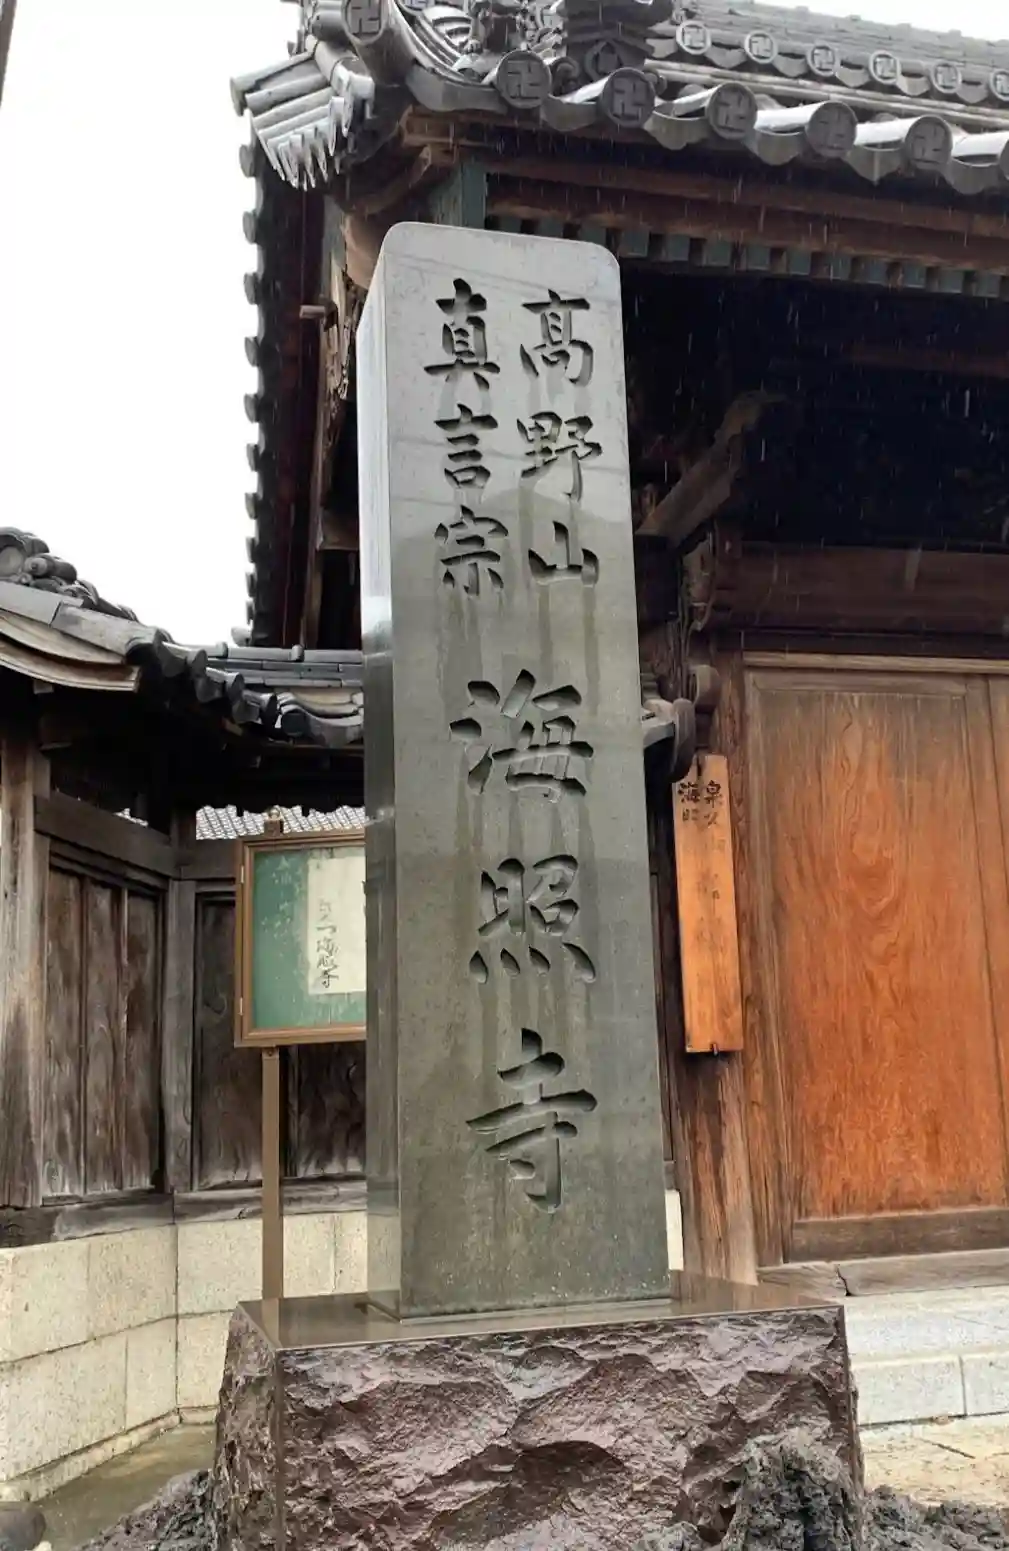 高野山
真言宗
海照寺